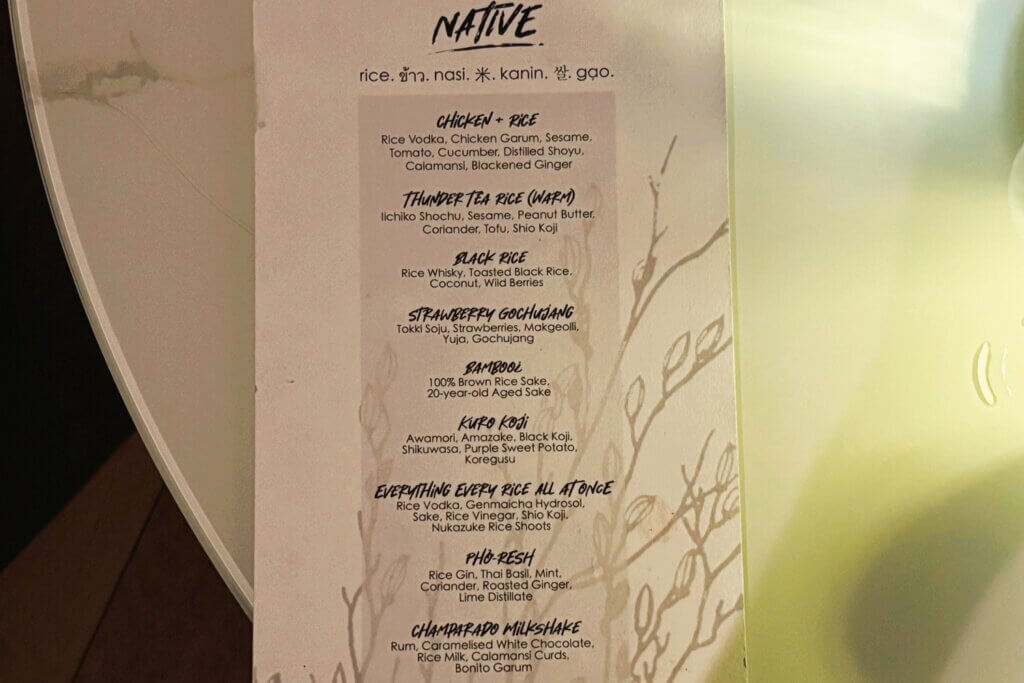 NATIVE
rice. ข้าว. nasi. 米. kanin. 쌀. gạo.
CHICKEN + RICE
Rice Vodka, Chicken Garum, Sesame,
Tomato, Cucumber, Distilled Shoyu,
Calamansi, Blackened Ginger
THUNDER TEA RICE (WARM)
Iichiko Shochu, Sesame, Peanut Butter,
Coriander, Tofu, Shio Koji
BLACK RICE
Rice Whisky, Toasted Black Rice,
Coconut, Wild Berries
STRAWBERRY GOCHUJANG
Tokki Soju, Strawberries, Makgeolli,
Yuja, Gochujang
BAMBOOZ
100% Brown Rice Sake,
20-year-old Aged Sake
KURO KOJI
Awamori, Amazake, Black Koji,
Shikuwasa, Purple Sweet Potato,
Koregusu
EVERYTHING EVERY RICE ALL AT ONCE
Rice Vodka, Genmaicha Hydrosol,
Sake, Rice Vinegar, Shio Koji,
Nukazuke Rice Shoots
PHỞ-RESH
Rice Gin, Thai Basil, Mint,
Coriander, Roasted Ginger,
Lime Distillate
CHAMPARADO MILKSHAKE
Rum, Caramelised White Chocolate,
Rice Milk, Calamansi Curds,
Bonito Garum